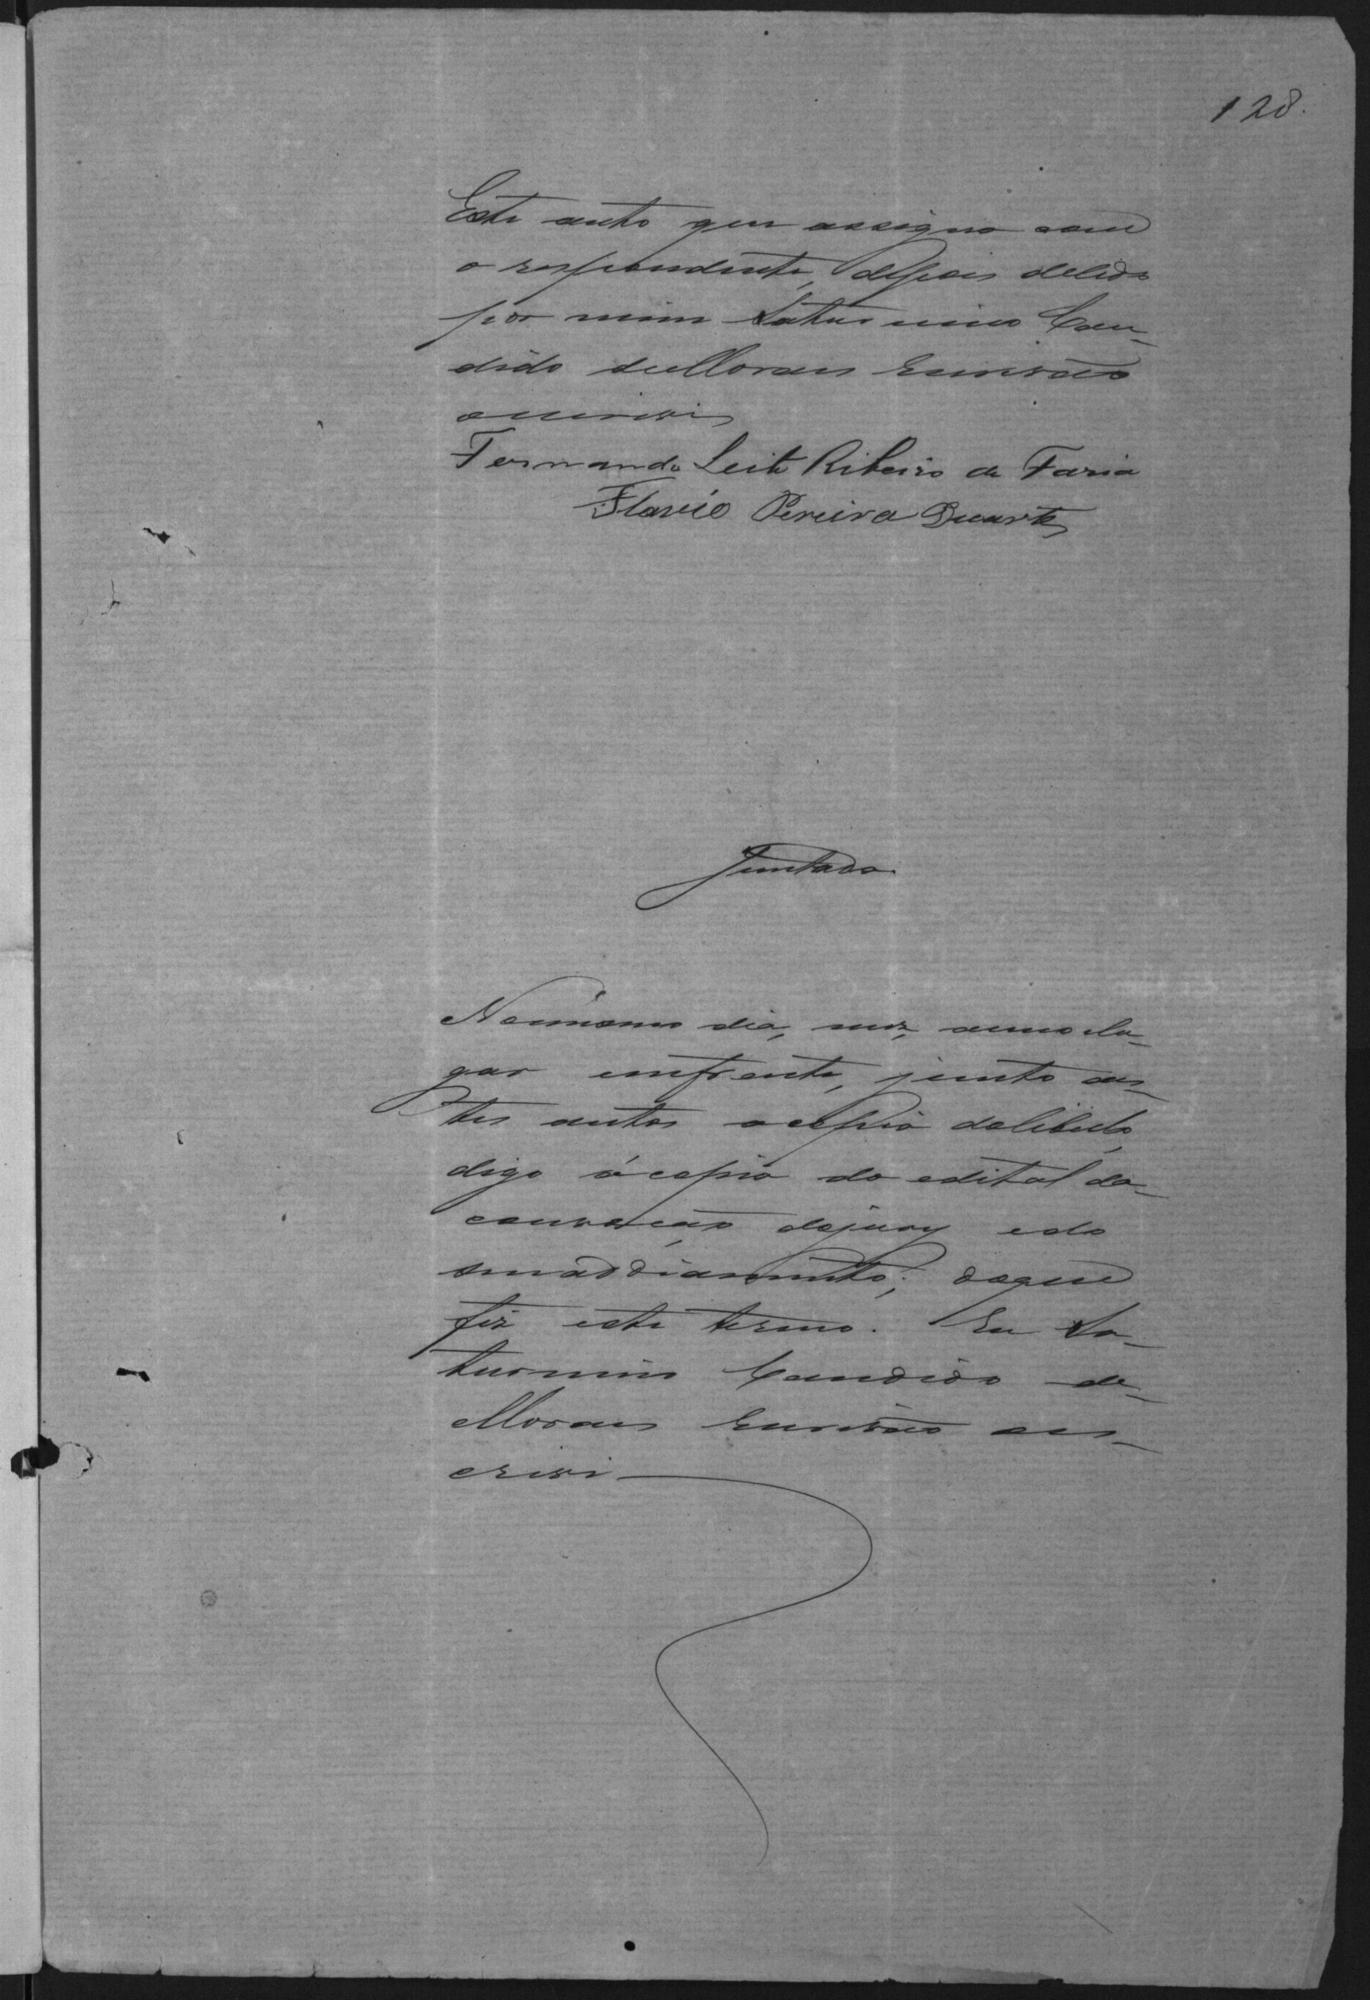 128.
Este auto que assigno com
o respondente, depois de lido
por mim Saturnino Can-
dido de Moraes Escrivão
o escrivi
Fernando Leite Ribeiro de Faria
Flavio Pereira Duarte
Juntada
No mesmo dia, mez, anno e lu-
gar em frente, junto aes-
tes autos a copia do libello,
digo a copia do edital da
convocação do jury e do
seu addiamento; do que
fiz este termo. Eu Sa-
turnino Candido de
Moraes Escrivão o es-
crivi